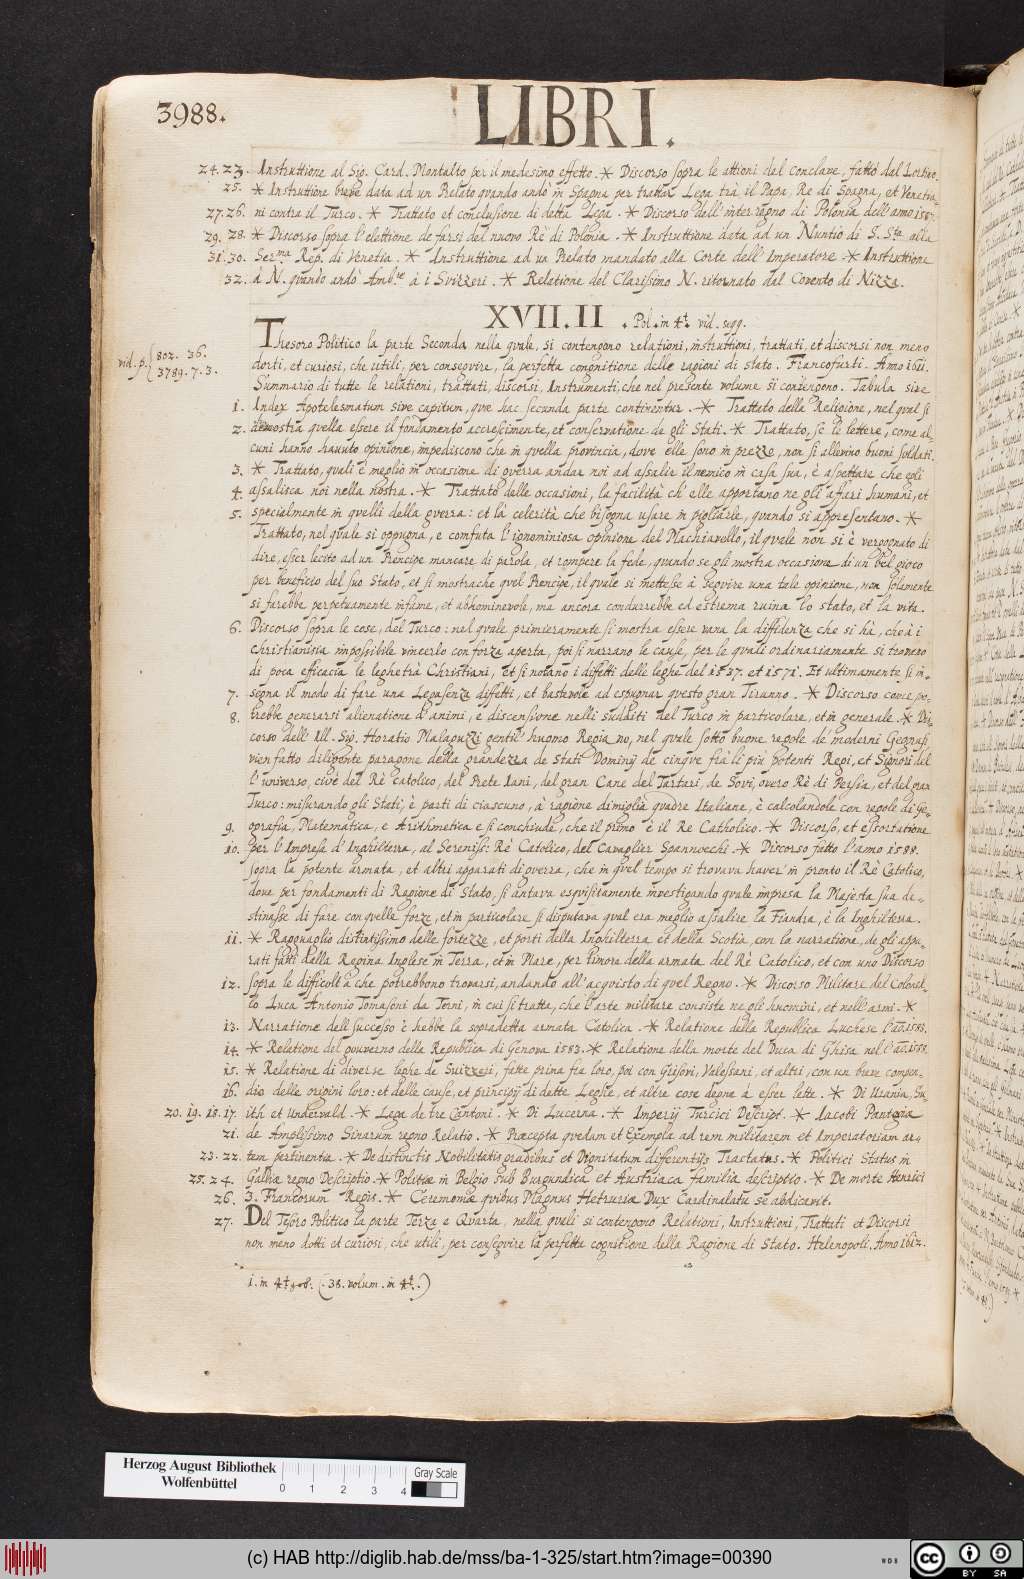 3988.
LIBRI.
24. 23. Instruttione al Sig. Card. Montalto per il medesimo effetto. * Discorso sopra le attioni dal conclave, fatto dal
25. * Instruttione breve data ad un Prelato quando andò in Spagna per trattar Lega trà il Papa, Re di Spagna, et Venetia-
27. 26. ni contra il Turco. * Trattato et conclusione di detta Lega. * Discorso dell' interregno di Polonia dell' anno 1587.
29. 28. * Discorso sopra l' elettione de farsi del nuovo Rè di Polonia. * Instruttione data ad un Nuntio di S. Sta. alla
31. 30. Serma Rep. di Venetia. * Instruttione ad un Prelato mandato alla Corte dell' Imperatore. * Instruttione
32. à N. quando andò Ambre à i Svizzeri. * Relatione del Clarissimo N. ritornato dal Covento di Nizza.
XVII. II . Pol. in 4t. vid. sqq.
vid. p. { 802. 36.
3789. 7. 3.
Thesoro Politico la parte Seconda nella quale, si contengono relationi, instruttioni, trattati, et discorsi non meno
dotti, et curiosi, che utili, per conseguire, la perfetta congnitione delle ragioni di stato. Francofurti. Anno 1611.
Summario di tutte le relationi, trattati, discorsi, Instrumenti, che nel presente volume si contengono. Tabula sive
1. Index Apotelesmatum sive capitum, que hac secunda parte continentur. * Trattato della Religione, nel qual si
2. demostra quella essere il fondamento accrescimente, et conservatione de gli Stati. * Trattato, se le lettere, come al-
cuni hanno havuto opinione, impediscono che in quella provincia, dove elle sono in prezzo, non si allevino buoni soldati.
3. * Trattato, quali è meglio in occasione di guerra andar noi ad assalir il nemico in casa sua, è aspettare che egli
4. assalisca noi nella nostra. * Trattato delle occasioni, la facilità ch' elle apportano ne gli affari humani, et
5. specialmente in quelli della guerra: et la celerità che bisogna usare in pigliarle, quando si appresentano. *
Trattato, nel quale si oppugna, e confuta l' ignominiosa opinione del Machiavello, il quele non si è vergognato di
dire, esser lecito ad un Prencipe mancare di parola, et rompere la fede, quando se gli mostra occasione di un bel gioco
per beneficio del suo Stato, et si mostrache quel Prencipe, il quale si mettesse à seguire una tale opinione, non solamente
si farebbe perpetuamente infame, et abhominevole, ma ancora condurrebbe ed estrema ruina lo stato, et la vita.
6. Discorso sopra le cose, del Turco: nel quale primieramente si mostra essere vana la diffidenza che si hà, che à i
christianissia impossibile vincerlo con forza aperta, poi si narrano le cause, per le quali ordinariamente si trovero
di poca efficacia le leghe trà Christiani, et si notano i diffetti delle leghe del 1537. et 1571. Et ultimamente si in-
7. segna il modo di fare una Lega senza diffetti, et bastevole ad espugnar questo gran Tiranno. * Discorso come po-
8. trebbe generarsi alienatione d' animi, e discensione nelli sudditi del Turco in particolare, et in generale. * Dis-
corso dell' Ill. Sig. Horatio Malaguzzi gentil' huomo Regiano, nel quale sotto buone regole de' moderni
vien fatto diligente paragone della grandezza de Stati Dominij de cinque frà li più potenti Regi, et Signori del
l' universo, cioè del Rè catolico, del Prete Iani, del gran Cane del Tartari, de Sovi, overo Rè di Persia, et del gran
Turco: misurando gli Stati, è parti di ciascuno, à ragione di miglià quadre Italiane, è calcolandole con regole di Ge-
9. ografia, Matematica, e Arithmetica e si conchiude, che il primo è il Re Catholico. * Discorso, et essortatione
10. per l' Impresa d' Inghilterra, al Sereniss: Rè Catolico, del Cavaglier Spannocchi. * Discorso fatto l' anno 1588.
sopra la potente armata, et altri apparati di guerra, che in quel tempo si trovava haver' in pronto il Rè Catolico,
dove per fondamenti di Ragione di Stato, si antava esquisitamente investigando quale impresa la Majesta sua de-
stinasse di fare con quelle forze, et in particolare si disputava qual era meglio assalire la Fiandra, è la Inghilterra.
11. * Ragguaglio distintissimo delle fortezze, et porti della Inghilterra et della Scotia, con la narratione, de gli appa-
rati fatti della Regina Inglese in Terra, et in Mare, per timore della armata del Rè Catolico, et con uno Discorso
12. sopra le difficoltà che potrebbono trovarsi, andando all' acquisto di quel Regno. * Discorso Militare del Colonel-
lo Luca Antonio Tomasoni da Terni, in cui si tratta, che l' arte militare consiste ne gli huomini, et nell' armi. *
13. Narratione dell successo è hebbe la sopradetta armata Catolica. * Relatione della Republica Luchese l' aō. 1583.
14. * Relatione del gouverno della Republica di Genova 1583. * Relatione della morte del Duca di Ghisa nel l' aō. 1588.
15. * Relatione di diverse leghe de Suizzeri, fatte prima fra loro, poi con Grisoni, Valessani, et altri, con un breve compen-
16. dio delle origini loro: et delle cause, et principij di dette Leghe, et altre cose degne à esser lette. * Di Urania, Su-
20. 19. 18. 17. ith et Undervald. * Lega de tre Cantoni. * Di Lucerna. * Imperij Turcici Descript. * Iacobi Pantogia
21. de Amplissimo Sinarum regno Relatio. * Præcepta quedam et Exempla ad rem militarem et Imperatoriam ar-
23. 22. tem pertinentia. * De distinctis Nobilitatis gradibus et Dignitatum differentijs Tractatus. * Politici Status in
25. 24. Galliæ regno Descriptio. * Politiæ in Belgio sub Burgundica et Austriaca familia descriptio. * De morte Henrici
26. 3. Francorum Regis. * Ceremoniæ quibus Magnus Hetruriæ Dux Cardinalatu se abdicavit.
27. Del Tesoro Politico la parte Terza e Quarta, nella quali si contengono Relationi, Instruttioni, Trattati et Discorsi
non meno dotti et curiosi, che utili, per conseguire la perfetta cognitione della Ragione di Stato. Helenopoli. Anno 1612.
1. in 4t. (38. volum. in 4t.)
Herzog August Bibliothek
Wolfenbüttel
0 1 2 3 4
Gray Scale
(c) HAB http://diglib.hab.de/mss/ba-1-325/start.htm?image=00390
WDB
cc BY SA